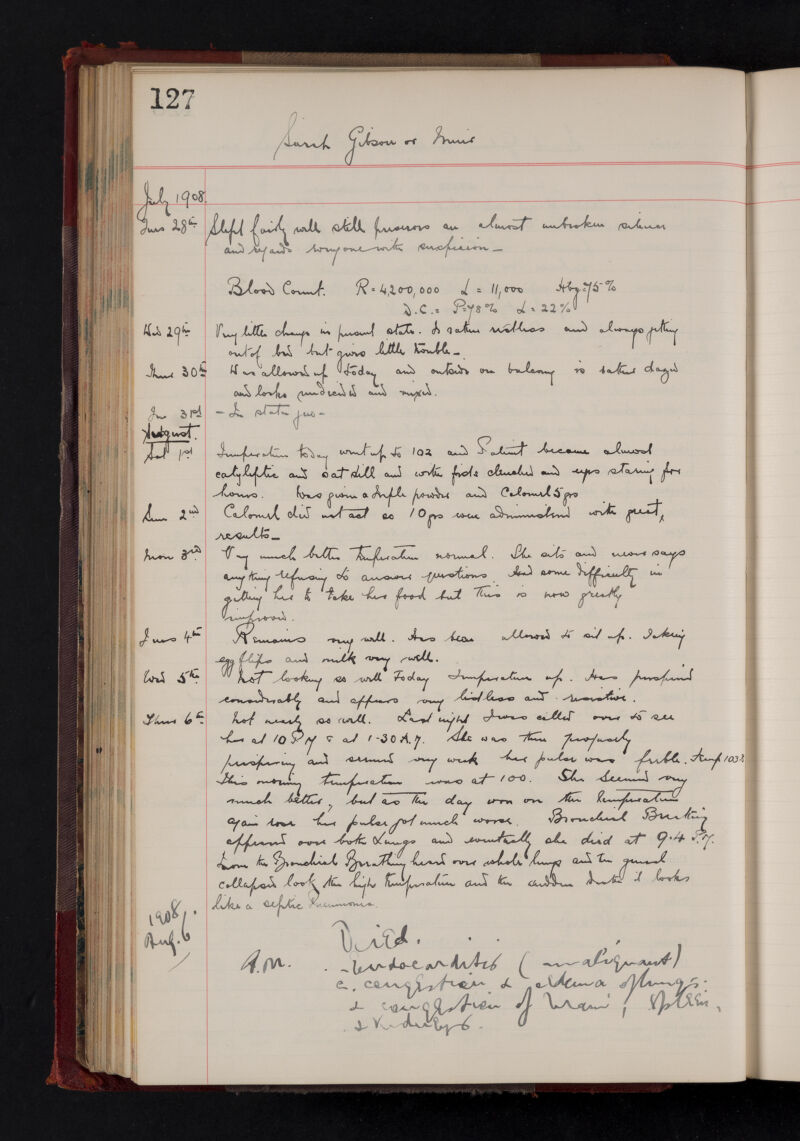 127
Sarah Gibson or Muir
July 1908.
Tues 28th Slept fairly well still preserves an almost unbroken silence
and regards everyone with suspicion —
Blood Count. R = 4,200,000 L = 11,000 Hbg 75%
D.C. = P = 78% L = 22%
Wed 29th Very little change in present state. Is rather restless and always getting
out of bed but gives little trouble —
Thurs 30th Was allowed up today and outside on balcony is rather dazed
and looks undecided and
31st — In statu quo —
August.
Sat 1st Temperature today went up to 102 and Patient became almost
cataleptic and sat still and with fists clenched and eyes staring for
hours. Was given a triple powder and Calomel 5 grs
Sun 2nd Calomel did not act so 10 grs were administered with great
results —
Mon 3rd Very much better temperature normal. She sits and never says
anything refusing to answer questions. Had some difficulty in
getting her to take her food but this is now greatly
improved.
Tues 4th Remains very well. Has been allowed to sit up. Taking
egg flips and milk very well.
Wed 5th Not looking so well today temperature up. Has perspired
considerably and appears very listless and resistive.
Thurs 6th Not nearly so well. Last night I was called over to see
her at 10 P.M & at 1-30 A.M. She was then profusely
perspiring and seemed very weak her pulse was feeble. Temp 103
This morning temperature was at 100. She seemed very
much better, but as the day wore on the temperature
again rose her pulse got much worse. Bronchial Breathing
appeared over both Lungs and eventually she died at 9.4 P.M.
From the Bronchial Breathing heard over whole lungs and the general
collapsed look, the high temperature and the sudden death it looks
like a septic Pneumonia.
1908.
Aug. 6
Died.
P.M. - Endocarditis (malignant)
c. congestion & oedema of lungs:
& congestion of brain, spleen,
& kidneys.